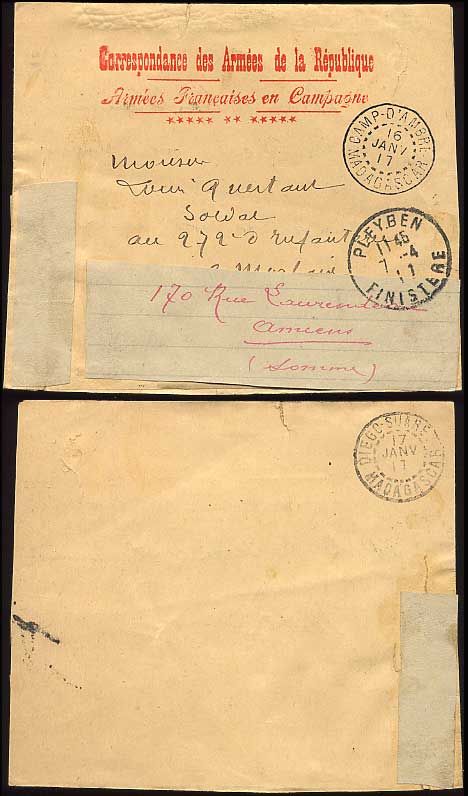 Correspondance des Armées de la République
Armées Françaises en Campagne
CAMP-D'AMBRE
16
JANV
17
MADAGASCAR
Monsieur
Louis Querlaut
Soldat
au 272e d'Infanterie
PLEYBEN
11 45
7 -4
FINISTERE
170 Rue Laurendeau
Amiens
(Somme)
DIEGO-SUARE
17
JANV
17
MADAGASCAR